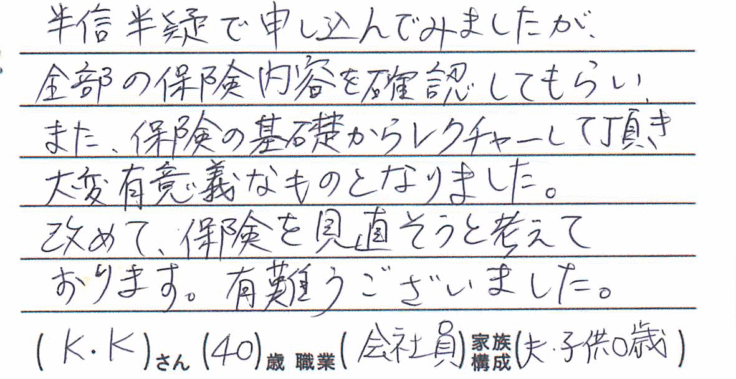 半信半疑で申し込んでみましたが、
全部の保険内容を確認してもらい、
また、保険の基礎からレクチャーして頂き
大変有意義なものとなりました。
改めて、保険を見直そうと考えて
おります。有難うございました。
(K.K)さん(40)歳 職業(会社員)家族構成(夫・子供0歳)